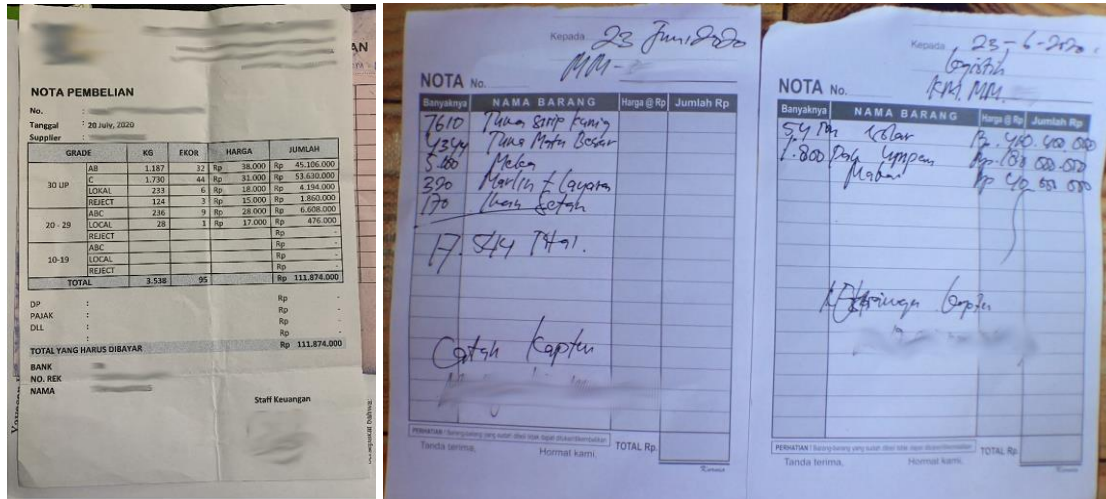 NOTA PEMBELIAN
No. :
Tanggal : 20 July, 2020
Supplier :
GRADE KG EKOR HARGA JUMLAH
30 UP
AB 1.187 32 Rp 38.000 Rp 45.106.000
C 1.730 44 Rp 31.000 Rp 53.630.000
LOKAL 233 6 Rp 18.000 Rp 4.194.000
REJECT 124 3 Rp 15.000 Rp 1.860.000
20 - 29
ABC 236 9 Rp 28.000 Rp 6.608.000
LOCAL 28 1 Rp 17.000 Rp 476.000
REJECT Rp -
10-19
ABC Rp -
LOCAL Rp -
REJECT Rp -
TOTAL 3.538 95 Rp 111.874.000
DP : Rp -
PAJAK : Rp -
DLL : Rp -
: Rp -
TOTAL YANG HARUS DIBAYAR Rp 111.874.000
BANK
NO. REK
NAMA
Staff Keuangan
Kepada 23 Juni 2020
MM-
NOTA No.
Banyaknya NAMA BARANG Harga @ Rp Jumlah Rp
7610 Tuna Sirip Kuning
4344 Tuna Mata Besar
Marlin + Layaran
170 Ikan Setan
17.544 Total.
Catah Kapten
PERHATIAN : Barang-barang yang sudah dibeli tidak dapat ditukar/dikembalikan
Tanda terima, Hormat kami, TOTAL Rp.
Kepada 23-6-2020.
Logistik
KM. MM.
NOTA No.
Banyaknya NAMA BARANG Harga @ Rp Jumlah Rp
54 Ton Solar Rp. 400.000
1.800 Pak Umpan Rp. 180.000.000
Makan Rp 40.000.000
Kapten
PERHATIAN : Barang-barang yang sudah dibeli tidak dapat ditukar/dikembalikan
Tanda terima, Hormat kami, TOTAL Rp.